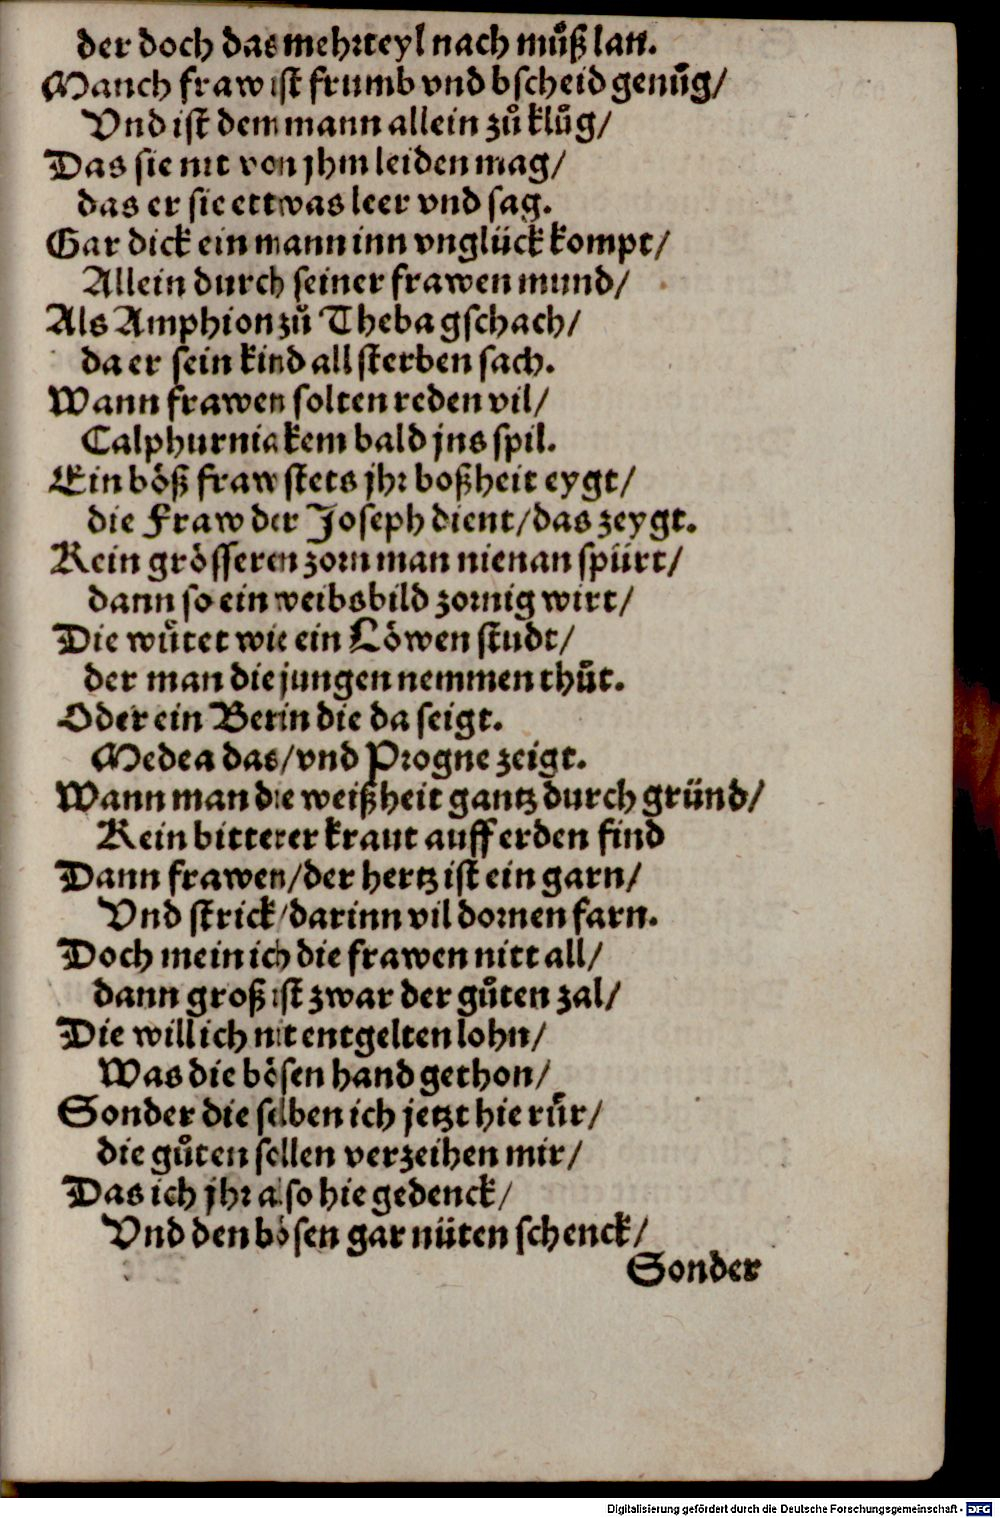 der doch das mehrteyl nach muͦß lan.
Manch fraw ist frumb vnd bscheid genuͦg/
Vnd ist dem mann allein zuͦ kluͦg/
Das sie nit von jhm leiden mag/
das er sie ettwas leer vnd sag.
Gar dick ein mann inn vnglück kompt/
Allein durch seiner frawen mund/
Als Amphion zuͦ Theba gschach/
da er sein kind all sterben sach.
Wann frawen solten reden vil/
Calphurnia kem bald jns spil.
Ein böß fraw stets jhr boßheit eygt/
die Fraw der Joseph dient/das zeygt.
Kein grösseren zorn man nienan spürt/
dann so ein weibsbild zornig wirt/
Die wuͤtet wie ein Löwen studt/
der man die jungen nemmen thuͦt.
Oder ein Berin die da seigt.
Medea das/vnd Progne zeigt.
Wann man die weißheit gantz durch gründ/
Kein bitterer kraut auff erden find
Dann frawen/der hertz ist ein garn/
Vnd strick/darinn vil dornen farn.
Doch mein ich die frawen nitt all/
dann groß ist zwar der guͦten zal/
Die will ich nit entgelten lohn/
Was die bösen hand gethon/
Sonder die selben ich jetzt hie ruͤr/
die guͦten sollen verzeihen mir/
Das ich jhr also hie gedenck/
Vnd den bösen gar nüten schenck/
Sonder
Digitalisierung gefördert durch die Deutsche Forschungsgemeinschaft - DFG